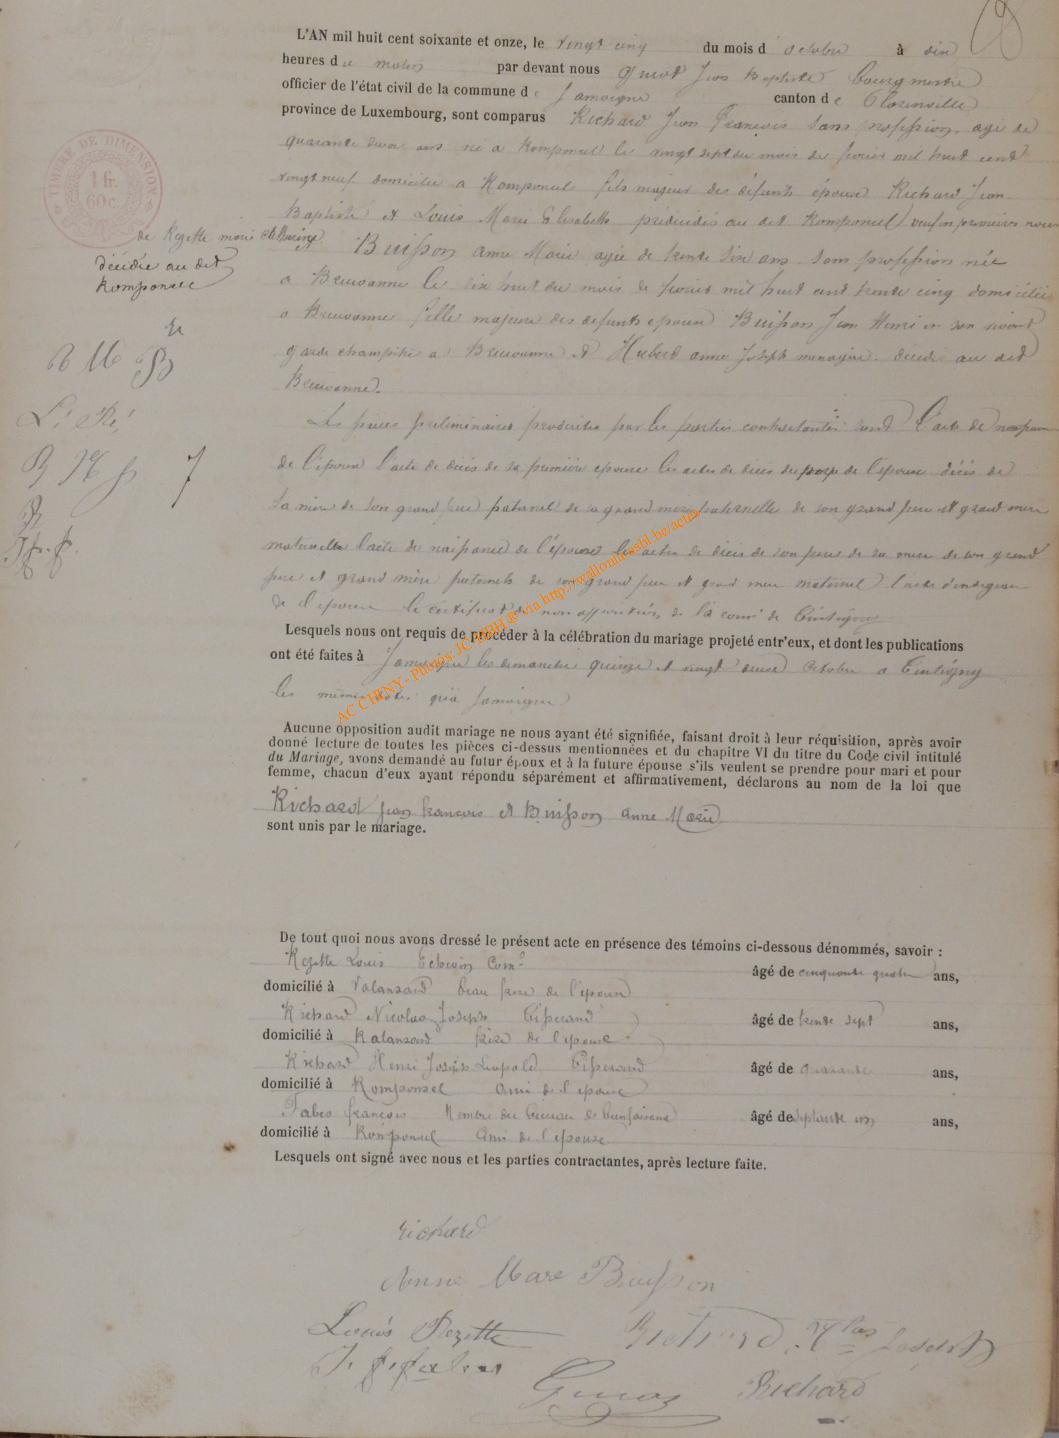 L'AN mil huit cent soixante et onze, le vingt cinq du mois d'octobre à dix
heures du matin par devant nous Guiot Jean Baptiste bourgmestre
officier de l'état civil de la commune de Jamoigne canton de Florenville
province de Luxembourg, sont comparus Richard Jean François sans profession, agé de
quarante deux ans né a Romponcel le vingt sept du mois de fevrier mil huit cent
vingt neuf domicilié a Romponcel fils majeur des défunts époux Richard Jean
Baptiste et Louis Marie Elisabeth prédécédés au dit Romponcel veuf en premières noces
de Rezette marie Catherine
décédée au dit
Romponcel
Buisson anne Marie agée de trente six ans sans profession née
a Breuvanne le dix huit du mois de fevrier mil huit cent trente cinq domiciliée
a Breuvanne fille majeure des defunts epoux Buisson Jean Henri en son vivant
garde champêtre a Breuvanne et Hubert anne Joseph menagère décédés au dit
Breuvanne.
Les pièces préliminaires produites par les parties contractantes sont l'acte de naissance
de l'époux l'acte de décès de sa première epouse les actes de décès du père de l'époux décès de
sa mère de son grand père paternel de sa grand mère paternelle de son grand père et grand mère
maternelle l'acte de naissance de l'épouse les actes de décès de son père de sa mère de son grand
père et grand mère paternels de son grand père et grand mère maternel
de l'epoux le certificat de non opposition de la comne de Tintigny
Lesquels nous ont requis de procéder à la célébration du mariage projeté entr'eux, et dont les publications
ont été faites à Jamoigne les dimanches quinze et vingt deux octobre a Tintigny
les mêmes dates qu'à Jamoigne
Aucune opposition audit mariage ne nous ayant été signifiée, faisant droit à leur réquisition, après avoir
donné lecture de toutes les pièces ci-dessus mentionnées et du chapitre VI du titre du Code civil intitulé
du Mariage, avons demandé au futur époux et à la future épouse s'ils veulent se prendre pour mari et pour
femme, chacun d'eux ayant répondu séparément et affirmativement, déclarons au nom de la loi que
Richard Jean francois et Buisson anne Marie
sont unis par le mariage.
De tout quoi nous avons dressé le présent acte en présence des témoins ci-dessous dénommés, savoir :
Rezette Louis Echevin Coml âgé de cinquante quatre ans,
domicilié à Valansard beau frère de l'époux
Richard Nicolas Joseph Tisserand âgé de trente sept ans,
domicilié à Valansard frère de l'époux
Richard Henri Joseph Leopold Tisserand âgé de quarante ans,
domicilié à Romponcel ami de l'epoux
Fabes françois Membre du bureau de bienfaisance âgé de septante ans,
domicilié à Romponcel ami de l'epouse
Lesquels ont signé avec nous et les parties contractantes, après lecture faite.
richard
Anne Mare Buisson
Louis Rezette
Richard Nlas Joseph
Guiot
Richard
TIMBRE DE DIMENSION
1 fr.
60 c.
AC CHINY - Photos: JC HBH @ via http://wallonia.asbl.be/actes